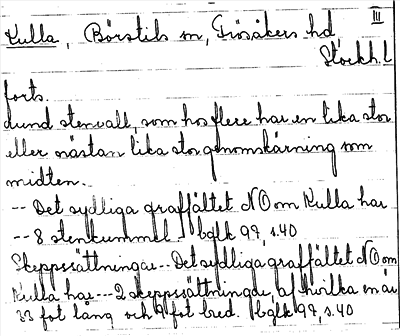 III
Kulla, Börstils sn, Frösåkers hd,
Stockh. l
forts.
dund stenvall, som hos flere har en lika stor
eller nästan lika stor genomskärning som
midten.
-- Det sydliga graffältet NO om Kulla har
-- 8 stenkummel - bglk 99, s. 40
Skeppssättningar -- Det sydliga graffältet NO om
Kulla har --- 2 skeppssättningar, af hvilka en är
33 fot lång och 9 fot bred. bglk 99, s. 40